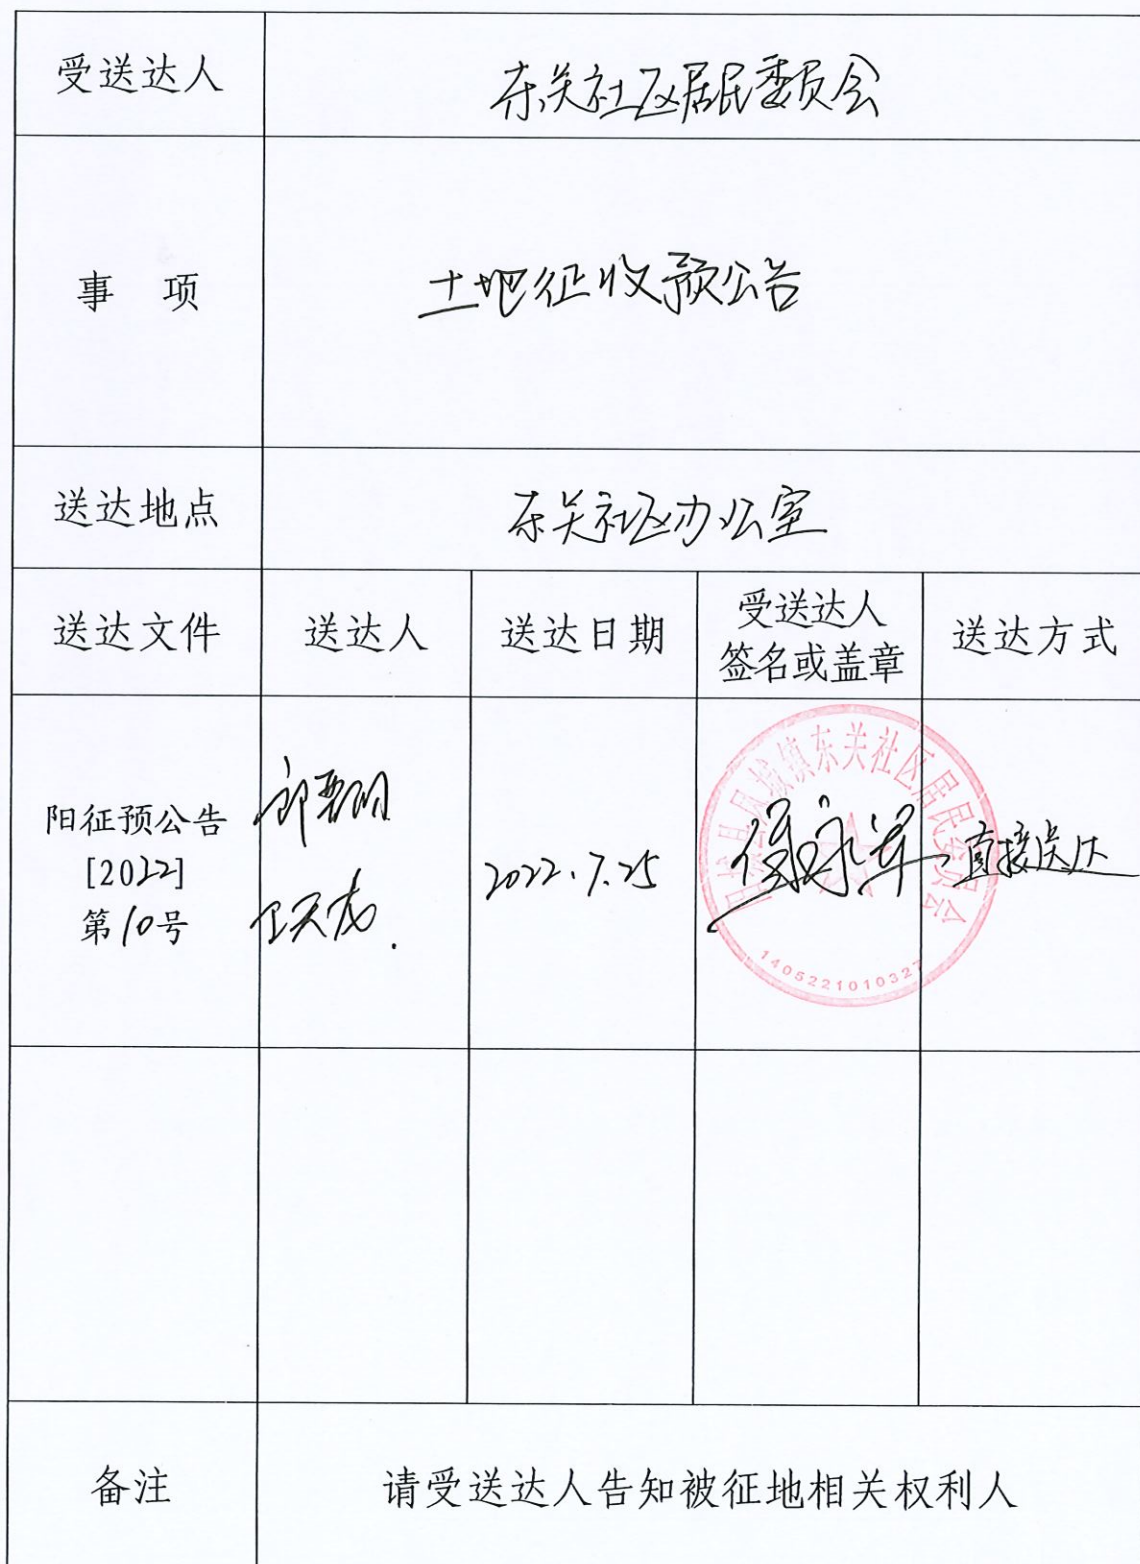 受送达人
东关社区居民委员会
事 项
土地征收预公告
送达地点
东关社区办公室
送达文件
送达人
送达日期
受送达人
签名或盖章
送达方式
阳征预公告
[2022]
第10号
2022.7.25
阳城县凤城镇东关社区居民委员会
1405221010327
直接送达
备注
请受送达人告知被征地相关权利人